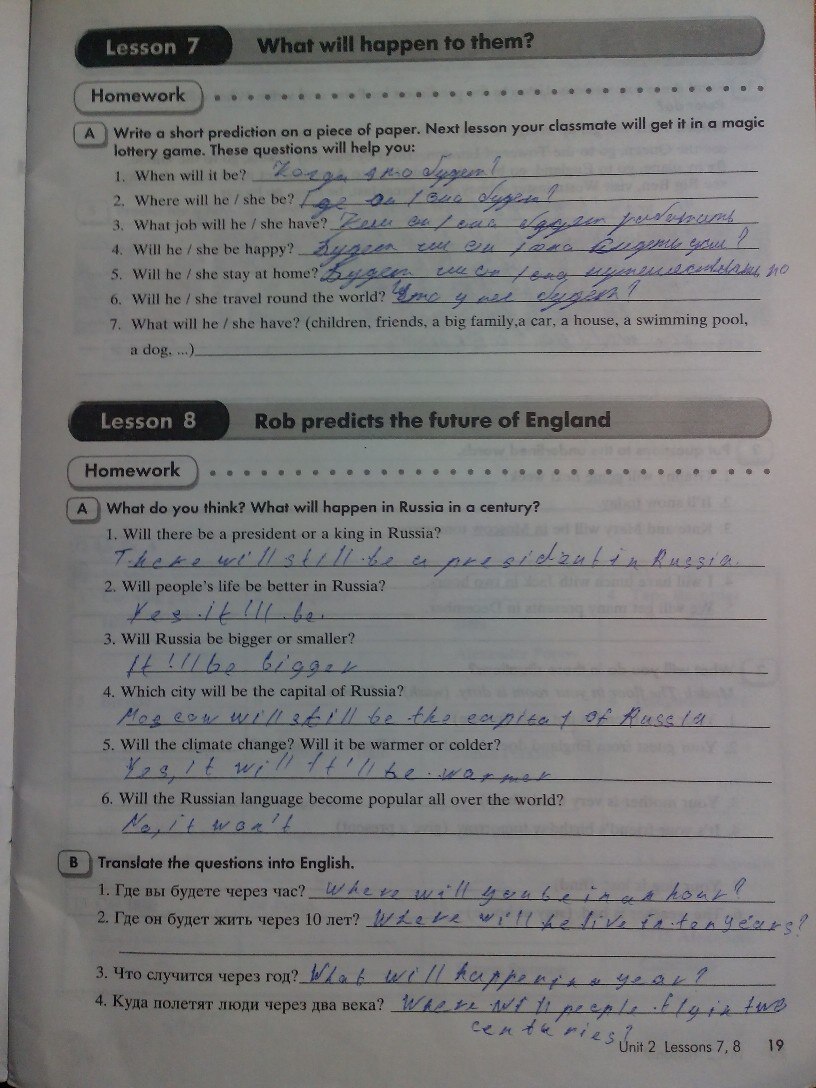 Lesson 7 What will happen to them?
Homework
A Write a short prediction on a piece of paper. Next lesson your classmate will get it in a magic
lottery game. These questions will help you:
1. When will it be? Когда это будет?
2. Where will he / she be? Где он / она будет?
3. What job will he / she have? Кем он / она будет работать
4. Will he / she be happy? Будет ли он / она
5. Will he / she stay at home? Будет ли он / она путешествовать по
6. Will he / she travel round the world? Что у нее будет?
7. What will he / she have? (children, friends, a big family,a car, a house, a swimming pool,
a dog, ...)
Lesson 8 Rob predicts the future of England
Homework
A What do you think? What will happen in Russia in a century?
1. Will there be a president or a king in Russia?
There will still be a president in Russia.
2. Will people's life be better in Russia?
Yes it'll be.
3. Will Russia be bigger or smaller?
It'll be bigger
4. Which city will be the capital of Russia?
Moscow will still be the capital of Russia
5. Will the climate change? Will it be warmer or colder?
Yes, it will It'll be warmer
6. Will the Russian language become popular all over the world?
No, it won't
B Translate the questions into English.
1. Где вы будете через час? Where will you be in an hour?
2. Где он будет жить через 10 лет? Where will he live in ten years?
3. Что случится через год? What will happen in a year?
4. Куда полетят люди через два века? Where will people fly in two
centuries?
Unit 2 Lessons 7, 8 19